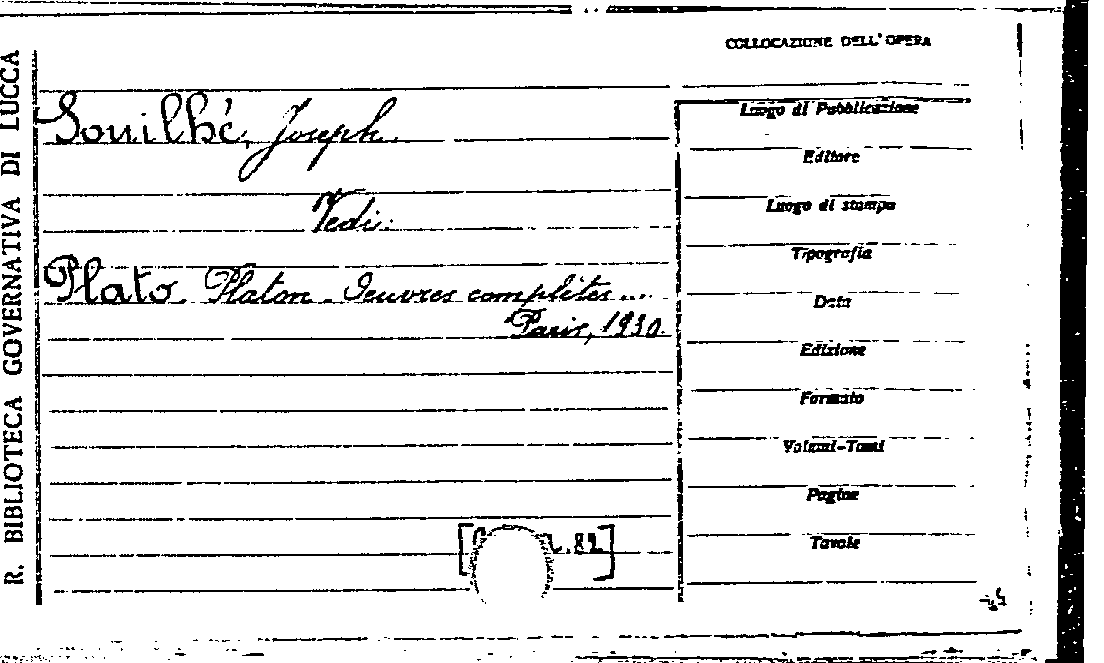 R. BIBLIOTECA GOVERNATIVA DI LUCCA
COLLOCAZIONE DELL'OPERA
Souilhé, Joseph.
Vedi:
Plato Platon - Oeuvres complètes ...
Paris, 1930.
Luogo di Pubblicazione
Editore
Luogo di stampa
Tipografia
Data
Edizione
Formato
Volumi-Tomi
Pagine
Tavole